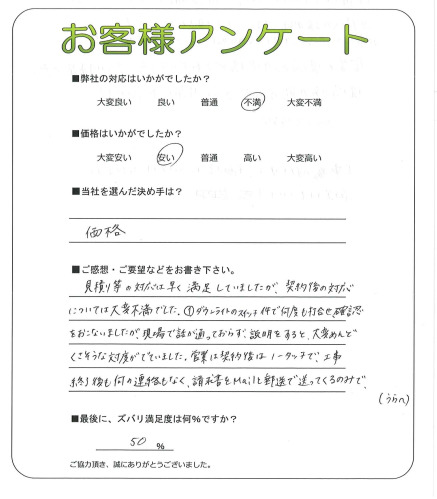 お客様アンケート
■弊社の対応はいかがでしたか？
大変良い 良い 普通 不満 大変不満
■価格はいかがでしたか？
大変安い 安い 普通 高い 大変高い
■当社を選んだ決め手は？
価格
■ご感想・ご要望などをお書き下さい。
見積り等の対応は早く満足していましたが、契約後の対応
については大変不満でした。①ダウンライトのスイッチ件で何度も打合せ、確認
をおこないましたが、現場で話が通っておらず、説明をすると、大変めんど
くさそうな対応がでていました。営業は契約後はノータッチで、工事
終了後も何の連絡もなく、請求書をMailと郵送で送ってくるのみで、
(うらへ)
■最後に、ズバリ満足度は何%ですか？
50 %
ご協力頂き、誠にありがとうございました。